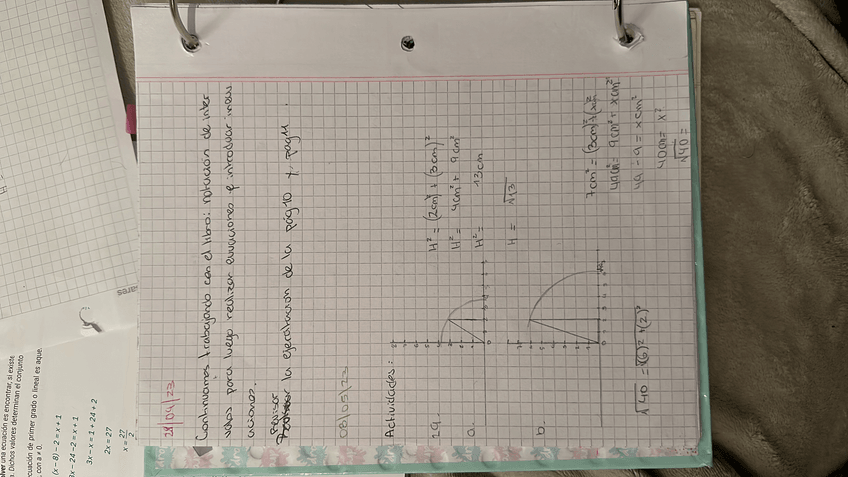 28/04/23
Continuamos trabajando con el libro: notación de inter
valos para luego realizar ecuaciones e introducir inecu
aciones.
Revisar la ejercitación de la pág 10 y pág 11.
03/05/23
Actividades:
19.
a.
H² = (2cm)² + (3cm)²
H² = 4cm² + 9cm²
H² = 13cm
H = √13
b.
√40 = (6)² + (2)²
7cm² = (3cm)² + (xcm
49cm² = 9cm² + xcm²
49 - 9 = xcm²
40cm = x²
√40 =
lver una ecuación es encontrar, si existe
. Dichos valores determinan el conjunto
cuación de primer grado o lineal es aque
con a ≠ 0.
(x - 8) - 2 = x + 1
3x - 24 - 2 = x + 1
3x - x = 1 + 24 + 2
2x = 27
x = 27/2